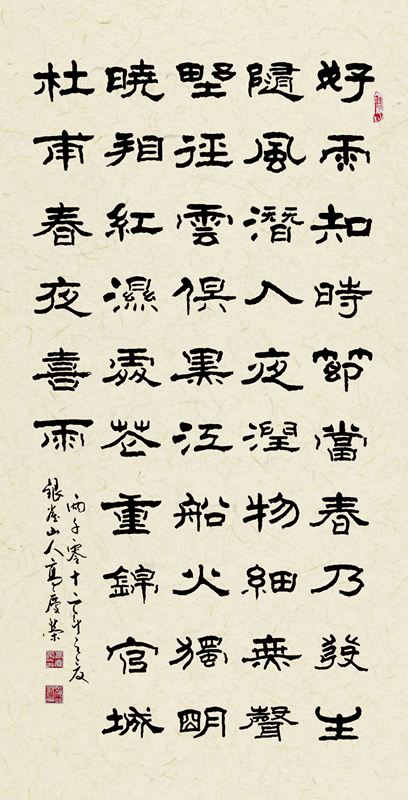 好雨知時節當春乃發生
隨風潛入夜潤物細無聲
野徑雲俱黑江船火獨明
曉看紅濕處花重錦官城
杜甫春夜喜雨
兩千零十二年之夏
銀雀山人高慶榮